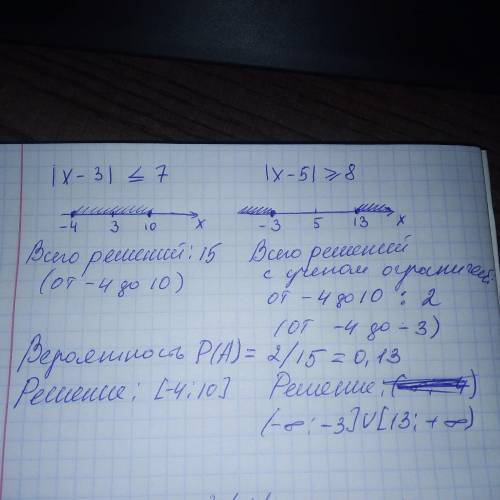 |x-3| ≤ 7
|x-5| ⩾ 8
-4 3 10 x
-3 5 13 x
Всего решений: 15
(от -4 до 10)
Всего решений
с учетом ограничен.
от -4 до 10 : 2
(от -4 до -3)
Вероятность P(A) = 2/15 = 0,13
Решение: [-4; 10]
Решение:
(-∞; -3]∪[13; +∞)